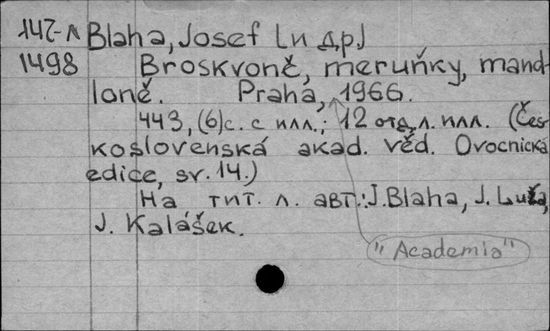 147-л Blaha, Josef [и др]
1498 Broskvoně, meruňky, mand-
loně. Praha, 1966.
443, (6)с. с илл.; 12 отд. л. илл. (Čes
koslovenská akad. věd. Ovocnická
edice, sv. 14.)
На тит. л. авт.: J. Blaha, J. Luža,
J. Kalášek.
"Academia"